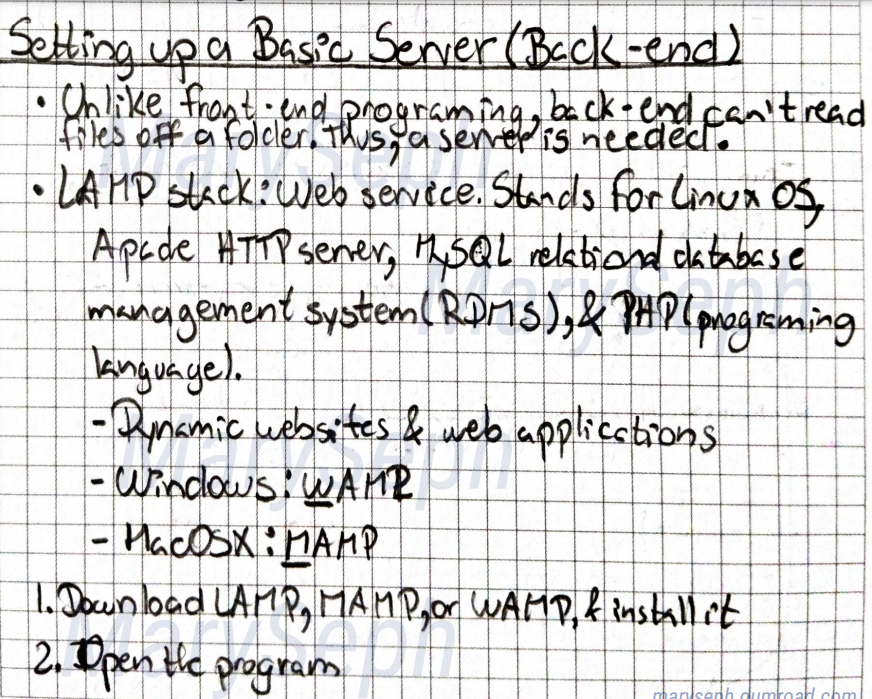 Setting up a Basic Server (Back-end)
• Unlike front-end programing, back-end can't read
files off a folder. Thus, a server is needed.
• LAMP stack: Web service. Stands for Linux OS,
Apache HTTP server, MySQL relational database
management system (RDMS), & PHP (programing
language).
- Dynamic websites & web applications
- Windows: WAMP
- MacOSX: MAMP
1. Download LAMP, MAMP, or WAMP, & install it
2. Open the program
MarySeph
MarySeph
MarySeph
MarySeph
maryseph.gumroad.com